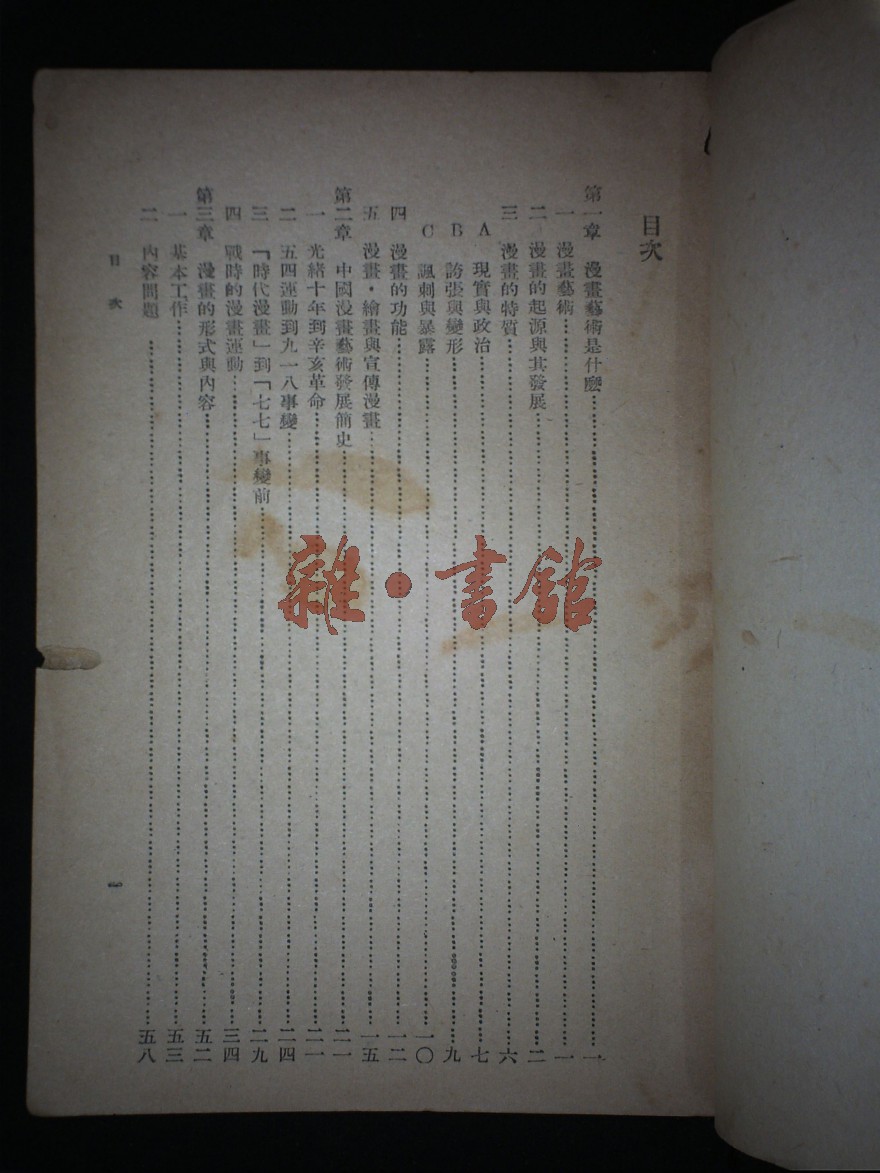 目次
第一章　漫畫藝術是什麽…………一
一　漫畫藝術…………一
二　漫畫的起源與其發展…………二
三　漫畫的特質…………六
A　現實與政治…………七
B　誇張與變形…………九
C　諷刺與暴露…………一〇
四　漫畫的功能…………一二
五　漫畫・繪畫與宣傳漫畫…………一五
第二章　中國漫畫藝術發展簡史…………二一
一　光緒十年到辛亥革命…………二一
二　五四運動到九一八事變…………二四
三　「時代漫畫」到「七七」事變前…………二九
四　戰時的漫畫運動…………三四
第三章　漫畫的形式與內容…………五二
一　基本工作…………五三
二　內容問題…………五八
目次
一
雜・書館